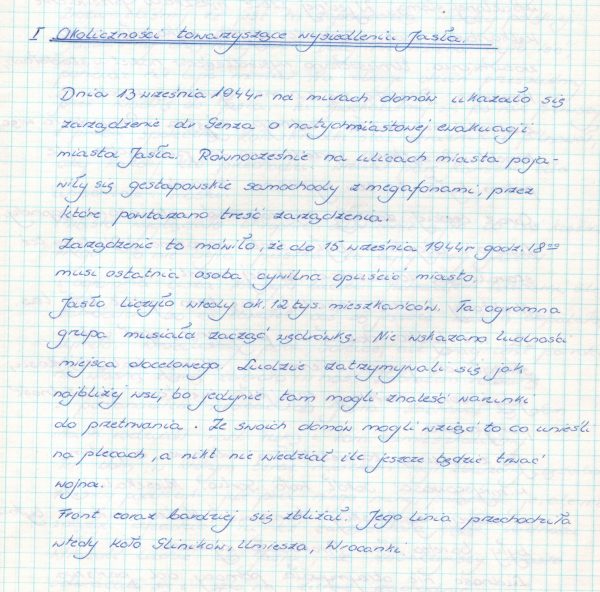 I Okoliczności towarzyszące wysiedleniu Jasła.
Dnia 13 września 1944r na murach domów ukazało się
zarządzenie dr Genza o natychmiastowej ewakuacji
miasta Jasła. Równocześnie na ulicach miasta poja-
wiły się gestapowskie samochody z megafonami, przez
które powtarzano treść zarządzenia.
Zarządzenie to mówiło, że do 15 września 1944r godz. 18⁰⁰
musi ostatnia osoba cywilna opuścić miasto.
Jasło liczyło wtedy ok. 12 tys. mieszkańców. Ta ogromna
grupa musiała zacząć wędrówkę. Nie wskazano ludności
miejsca docelowego. Ludzie zatrzymywali się jak
najbliżej wsi, bo jedynie tam mogli znaleść warunki
do przetrwania. Ze swoich domów mogli wziąć to co unieśli
na plecach, a nikt nie wiedział ile jeszcze będzie trwać
wojna.
Front coraz bardziej się zbliżał. Jego linia przechodziła
wtedy koło Gliników, Umiesza, Wrocanki